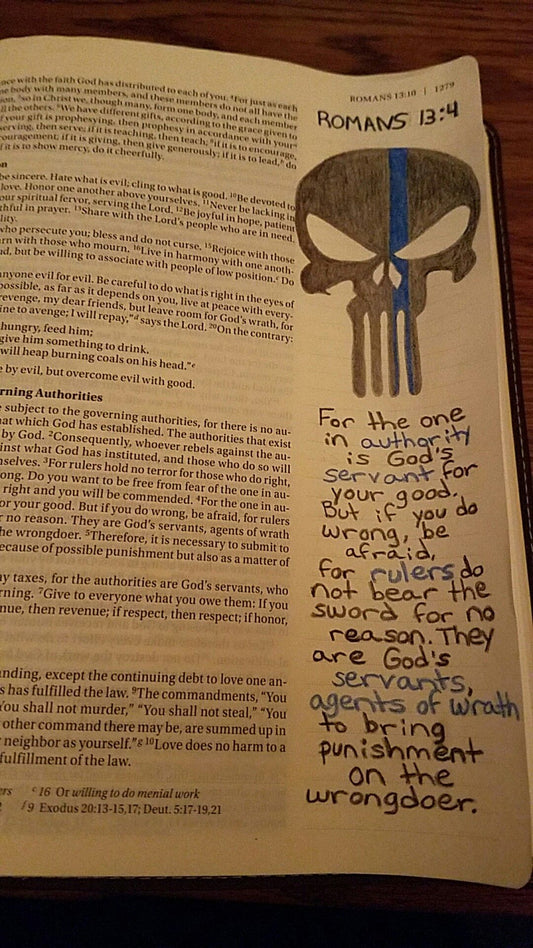 ROMANS 13:10 | 1279
nce with the faith God has distributed to each of you. ⁴For just as each
body with many members, and these members do not all have the
⁵so in Christ we, though many, form one body, and each member
the others. ⁶We have different gifts, according to the grace given to
your gift is prophesying, then prophesy in accordance with your
serving, then serve; if it is teaching, then teach; ⁸if it is to encourage,
ouragement; if it is giving, then give generously; if it is to lead,ᵇ do
if it is to show mercy, do it cheerfully.
be sincere. Hate what is evil; cling to what is good. ¹⁰Be devoted to
love. Honor one another above yourselves. ¹¹Never be lacking in
our spiritual fervor, serving the Lord. ¹²Be joyful in hope, patient
thful in prayer. ¹³Share with the Lord's people who are in need.
lity.
who persecute you; bless and do not curse. ¹⁵Rejoice with those
rn with those who mourn. ¹⁶Live in harmony with one anoth-
ud, but be willing to associate with people of low position.ᶜ Do
anyone evil for evil. Be careful to do what is right in the eyes of
possible, as far as it depends on you, live at peace with every-
revenge, my dear friends, but leave room for God's wrath, for
ine to avenge; I will repay,"ᵈ says the Lord. ²⁰On the contrary:
hungry, feed him;
give him something to drink.
will heap burning coals on his head."ᵉ
e by evil, but overcome evil with good.
rning Authorities
e subject to the governing authorities, for there is no au-
hat which God has established. The authorities that exist
by God. ²Consequently, whoever rebels against the au-
inst what God has instituted, and those who do so will
mselves. ³For rulers hold no terror for those who do right,
ong. Do you want to be free from fear of the one in au-
right and you will be commended. ⁴For the one in au-
or your good. But if you do wrong, be afraid, for rulers
r no reason. They are God's servants, agents of wrath
he wrongdoer. ⁵Therefore, it is necessary to submit to
ecause of possible punishment but also as a matter of
ay taxes, for the authorities are God's servants, who
rning. ⁷Give to everyone what you owe them: If you
nue, then revenue; if respect, then respect; if honor,
anding, except the continuing debt to love one an-
s has fulfilled the law. ⁹The commandments, "You
You shall not murder," "You shall not steal," "You
other command there may be, are summed up in
neighbor as yourself."ᵍ ¹⁰Love does no harm to a
fulfillment of the law.
ers ᶜ 16 Or willing to do menial work
ᶠ 9 Exodus 20:13-15,17; Deut. 5:17-19,21
ROMANS 13:4
For the one
in authority
is God's
servant for
your good.
But if you do
wrong, be
afraid,
for rulers do
not bear the
sword for no
reason. They
are God's
servants,
agents of wrath
to bring
punishment
on the
wrongdoer.